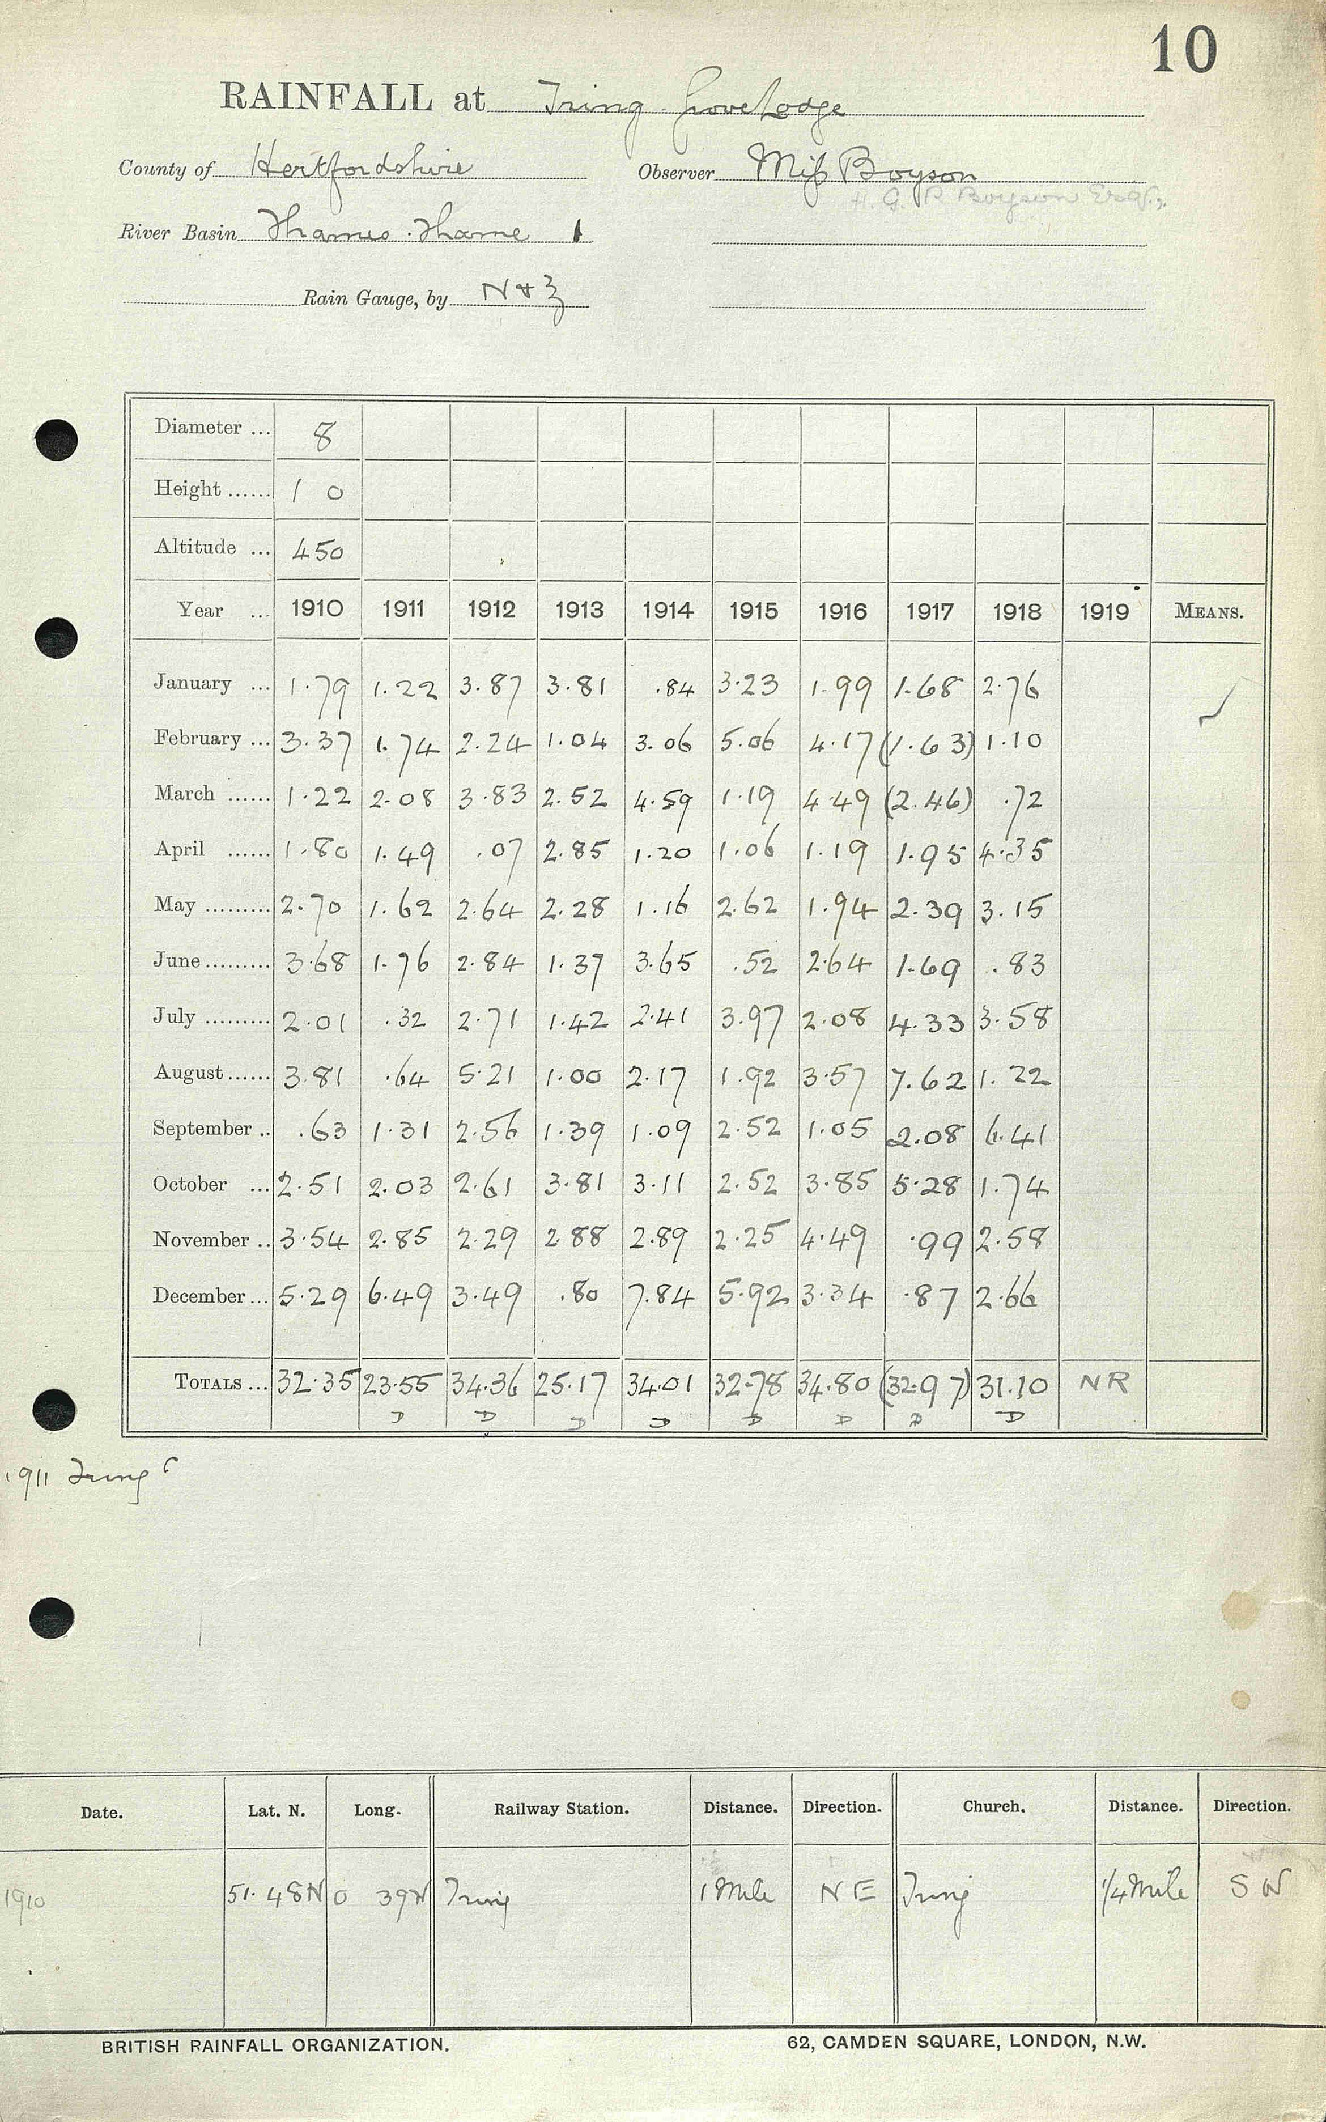 10
RAINFALL at Tring Grove Lodge
County of Hertfordshire Observer Miss Boyson
H. G. R Boyson Esq.,
River Basin Thames . Thame 1
Rain Gauge, by N & Z
Diameter ... 8
Height ...... 1 0
Altitude ... 450
Year ... 1910 1911 1912 1913 1914 1915 1916 1917 1918 1919 MEANS.
January ... 1.79 1.22 3.87 3.81 .84 3.23 1.99 1.68 2.76
February ... 3.37 1.74 2.24 1.04 3.06 5.06 4.17 (1.63) 1.10
March ...... 1.22 2.08 3.83 2.52 4.59 1.19 4.49 (2.46) .72
April ...... 1.80 1.49 .07 2.85 1.20 1.06 1.19 1.95 4.35
May ......... 2.70 1.62 2.64 2.28 1.16 2.62 1.94 2.39 3.15
June ......... 3.68 1.76 2.84 1.37 3.65 .52 2.64 1.69 .83
July ......... 2.01 .32 2.71 1.42 2.41 3.97 2.08 4.33 3.58
August ...... 3.81 .64 5.21 1.00 2.17 1.92 3.57 7.62 1.22
September .. .63 1.31 2.56 1.39 1.09 2.52 1.05 2.08 6.41
October ... 2.51 2.03 2.61 3.81 3.11 2.52 3.85 5.28 1.74
November .. 3.54 2.85 2.29 2.88 2.89 2.25 4.49 .99 2.58
December ... 5.29 6.49 3.49 .80 7.84 5.92 3.34 .87 2.66
TOTALS ... 32.35 23.55 34.36 25.17 34.01 32.78 34.80 (32.97) 31.10 NR
D D D D D D D D
1911 Tring
Date. Lat. N. Long. Railway Station. Distance. Direction. Church. Distance. Direction.
1910 51. 48N 0 39W Tring 1 Mile NE Tring 1/4 Mile SW
BRITISH RAINFALL ORGANIZATION. 62, CAMDEN SQUARE, LONDON, N.W.